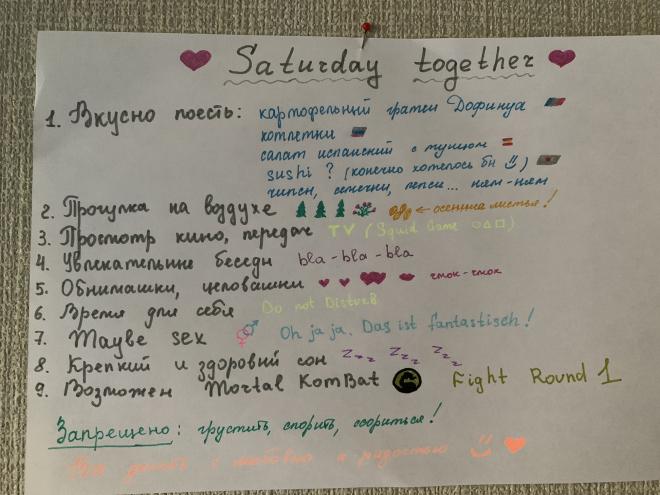 Saturday together
1. Вкусно поесть: картофельный гратен Дофинуа
котлетки
салат испанский с тунцом
sushi ? (конечно хотелось бы )
чипсы, семечки, пепси... ням-ням
2. Прогулка на воздухе ← осенние листья!
3. Просмотр кино, передач TV (Squid Game ○△□)
4. Увлекательные беседы bla-bla-bla
5. Обнимашки, целовашки чмок-чмок
6. Время для себя Do not DisturB
7. Maybe sex Oh ja ja. Das ist fantastisch!
8. Крепкий и здоровый сон Zzz Zzz Zzz
9. Возможен Mortal KomBat Fight Round 1
Запрещено: грустить, спорить, ссориться!
делать с любовью и радостью